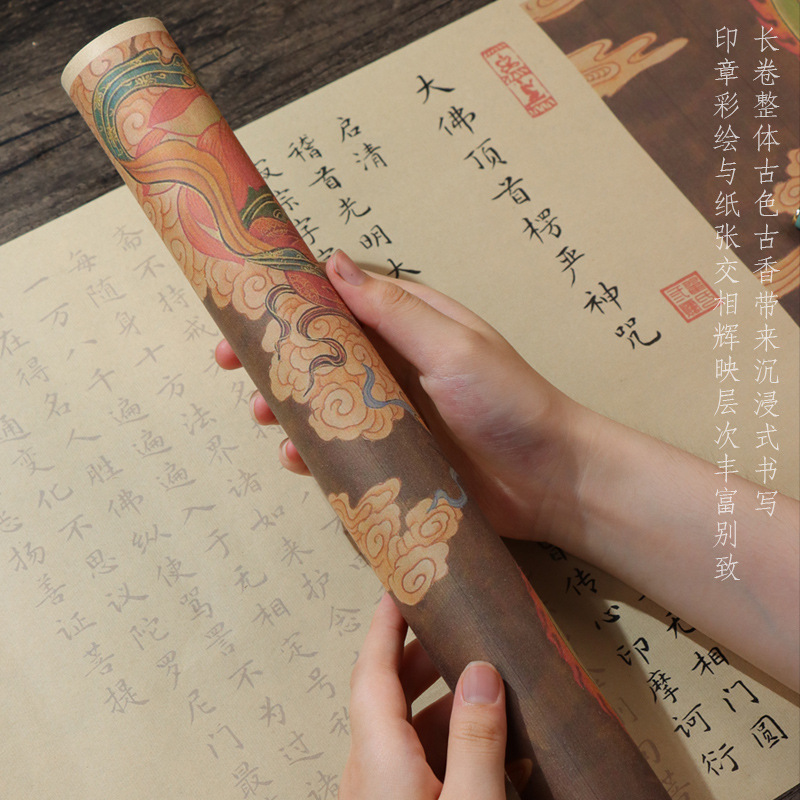 长卷整体古色古香带来沉浸式书写
印章彩绘与纸张交相辉映层次丰富别致
大佛顶首楞严神咒
启清
稽首光明大
无相门圆
传心印摩诃衍
斋不持戒
每随身十方法界诸如来护念
一万八千遍遍入于无相定号称
在得名人胜佛纵使骂詈不为过诸
通变化不思议陀罗尼门最
恶扬善证菩提